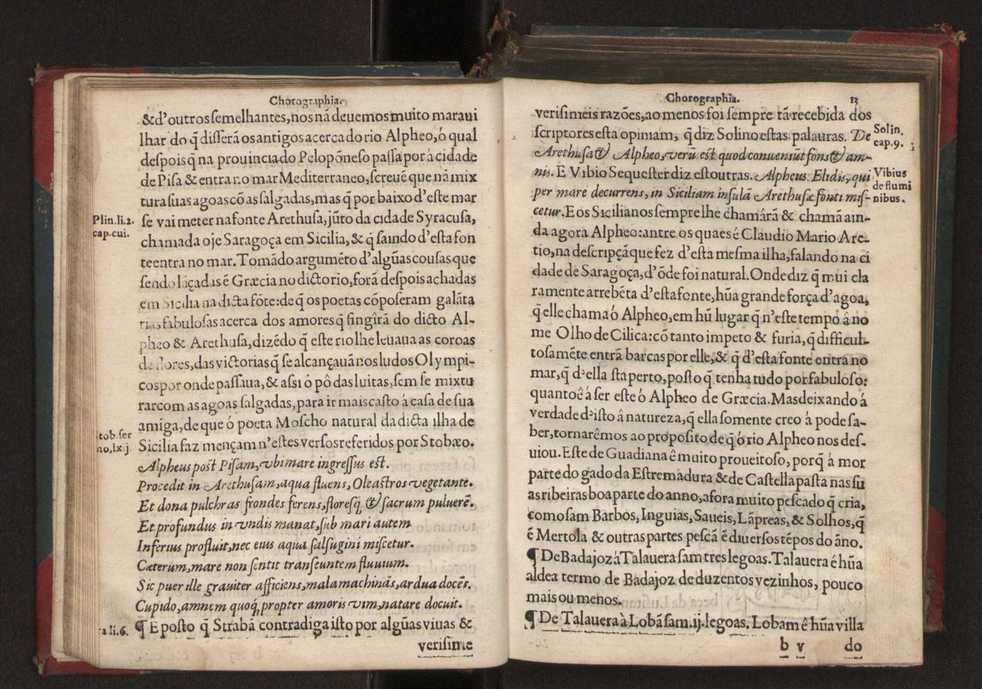 Chorographia.
&d'outros semelhantes, nos nã deuemos muito maraui
lhar do q̃ differã os antigos acerca do rio Alpheo, ó qual
despois q̃ na prouincia do Peloponeso passa por á cidade
de Pisa & entra no mar Mediterraneo, screuẽ que nã mix
tura suas agoas cõ as salgadas, mas q̃ por baixo d'este mar
Plin. li. 2.
cap. cui.
se vai meter na fonte Arethusa, jũto da cidade Syracusa,
chamada oje Saragoça em Sicilia, & q̃ saindo d'esta fon
te entra no mar. Tomãdo argumẽto d'algũas cousas que
sendo lãçadas ẽ Græcia no dicto rio, forã despois achadas
em Sicilia na dicta fõte: de q̃ os poetas cõposeram galãta
rias fabulosas acerca dos amores q̃ fingirã do dicto Al-
pheo & Arethusa, dizẽdo q̃ este rio lhe leuaua as coroas
de flores, das victorias q̃ se alcançauã nos ludos Olympi-
cos por onde passaua, & assi ó pô das luitas, sem se mixtu
rarcom as agoas salgadas, para ir mais casto à casa de sua
amiga, de que ó poeta Moscho natural da dicta ilha de
stob. ser
no, lxij.
Sicilia faz mençam n'estes versos referidos por Stobæo.
Alpheus post Pisam, vbi mare ingressus est.
Procedit in Arethusam, aqua fluens, Oleastros vegetante.
Et dona pulchras frondes ferens, floresq̃ & sacrum puluerẽ.
Et profundus in vndis manat, sub mari autem
Inferius profluit, nec eius aqua salsugini miscetur.
Cæterum, mare non sentit transeuntem fluuium.
Sic puer ille grauiter afficiens, mala machinãs, ardua docẽs.
Cupido, amnem quoq̃ propter amoris vim, natare docuit.
li. 6.
¶ E posto q̃ Strabã contradiga isto por algũas viuas &
verisime
Chorographia.
13
verisimeis razões, ao menos foi sempre tã recebida dos
scriptores esta opiniam, q̃ diz Solino estas palauras. De
Solin.
cap. 9.
Arethusa & Alpheo, verũ est quod conueniũt fons & am-
nis. E Vibio Sequester diz estoutras. Alpheus Elidis, qui
Vibius
de flumi
nibus.
per mare decurrens, in Siciliam insulã Arethusæ fonti mis-
cetur. E os Sicilianos sempre lhe chamárã & chamã ain-
da agora Alpheo: antre os quaes é Claudio Mario Are-
tio, na descripçã que fez d'esta mesma ilha, falando na ci
dade de Saragoça, d'õde foi natural. Onde diz q̃ mui cla
ramente arrebẽta d'esta fonte, hũa grande força d'agoa,
q̃ elle chama ó Alpheo, em hũ lugar q̃ n'este tempo á no
me Olho de Cilica: cõ tanto impeto & furia, q̃ difficul-
tosamẽte entrã barcas por elle, & q̃ d'esta fonte entra no
mar, q̃ d'ella sta perto, posto q̃ tenha tudo por fabuloso:
quanto ê á ser este ó Alpheo de Græcia. Mas deixando á
verdade d'isto á natureza, q̃ ella somente creo á pode sa-
ber, tornarêmos ao proposito de q̃ ó rio Alpheo nos des-
uiou. Este de Guadiana ê muito proueitoso, porq̃ á mor
parte do gado da Estremadura & de Castella pasta nas su
as ribeiras boa parte do anno, afora muito pescado q̃ cria,
como sam Barbos, Inguias, Saueis, Lãpreas, & Solhos, q̃
ê Mertola & outras partes pescã ê diuersos tẽpos do áno.
¶ De Badajoz à Talauera sam tres legoas. Talauera ê hũa
aldea termo de Badajoz de duzentos vezinhos, pouco
mais ou menos.
¶ De Talauera à Lobã sam .ij. legoas. Lobam ê hũa villa
b v do